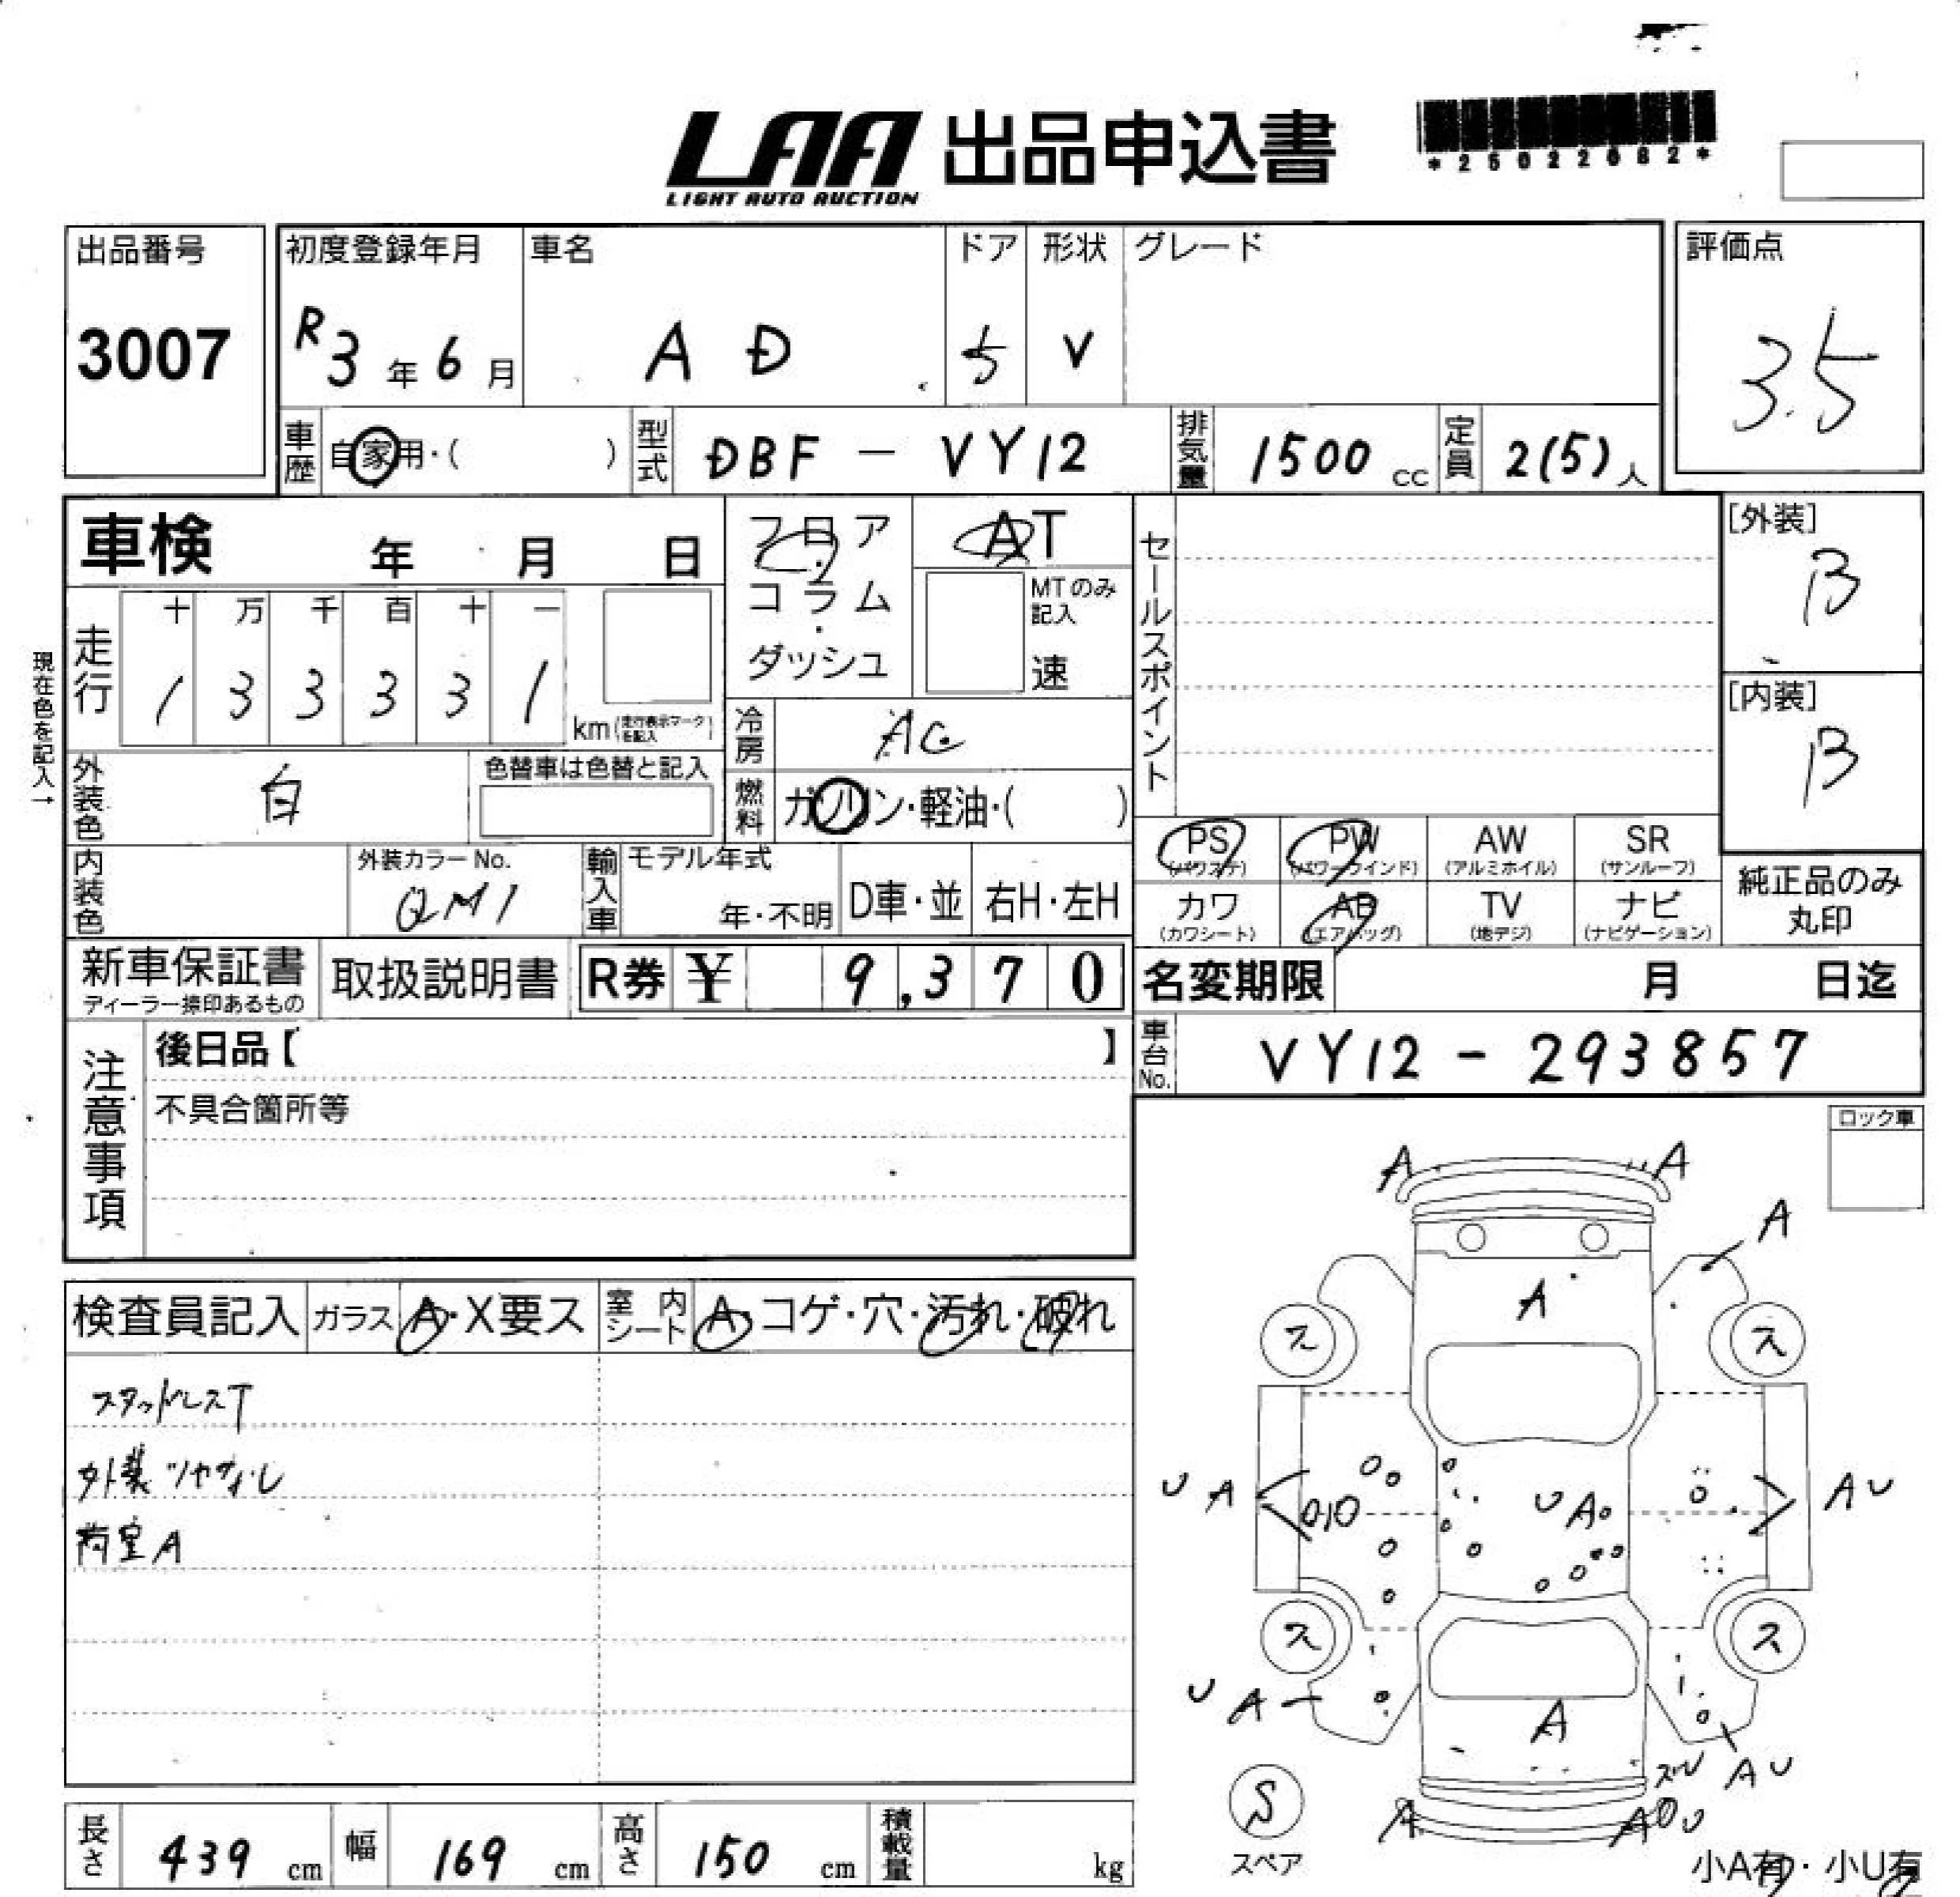 LAA 出品申込書
LIGHT AUTO AUCTION
*25022082*
出品番号
3007
初度登録年月
R3年6月
車名
AD
ドア
5
形状
V
グレード
評価点
3.5
車歴 自家用・( )
型式 DBF - VY12
排気量 1500 cc
定員 2(5)人
車検 年 月 日
フロア・コラム・ダッシュ
AT
MTのみ記入
速
セールスポイント
[外装]
B
[内装]
B
現在色を記入→
走行
十 万 千 百 十 一
1 3 3 3 3 1
km(走行表示マークを記入)
冷房 AC
外装色 白
色替車は色替と記入
燃料 ガソリン・軽油・( )
内装色
外装カラーNo.
QM1
輸入車
モデル年式
年・不明
D車・並
右H・左H
PS (パワステ)
PW (パワーウインド)
AW (アルミホイル)
SR (サンルーフ)
カワ (カワシート)
AB (エアバッグ)
TV (地デジ)
ナビ (ナビゲーション)
純正品のみ丸印
新車保証書
ディーラー捺印あるもの
取扱説明書
R券 ¥ 9,370
名変期限 月 日迄
車台No. VY12 - 293857
注意事項
後日品【 】
不具合箇所等
ロック車
検査員記入
ガラス A・X要ス
室内シート A・コゲ・穴・汚れ・破れ
スタッドレスT
外装ツヤナシ
荷室A
A A
A
A
ス ス
U A
A U
U A
ス ス
U A
A
A U
A
S
スペア
小A有・小U有
長さ 439 cm
幅 169 cm
高さ 150 cm
積載量 kg